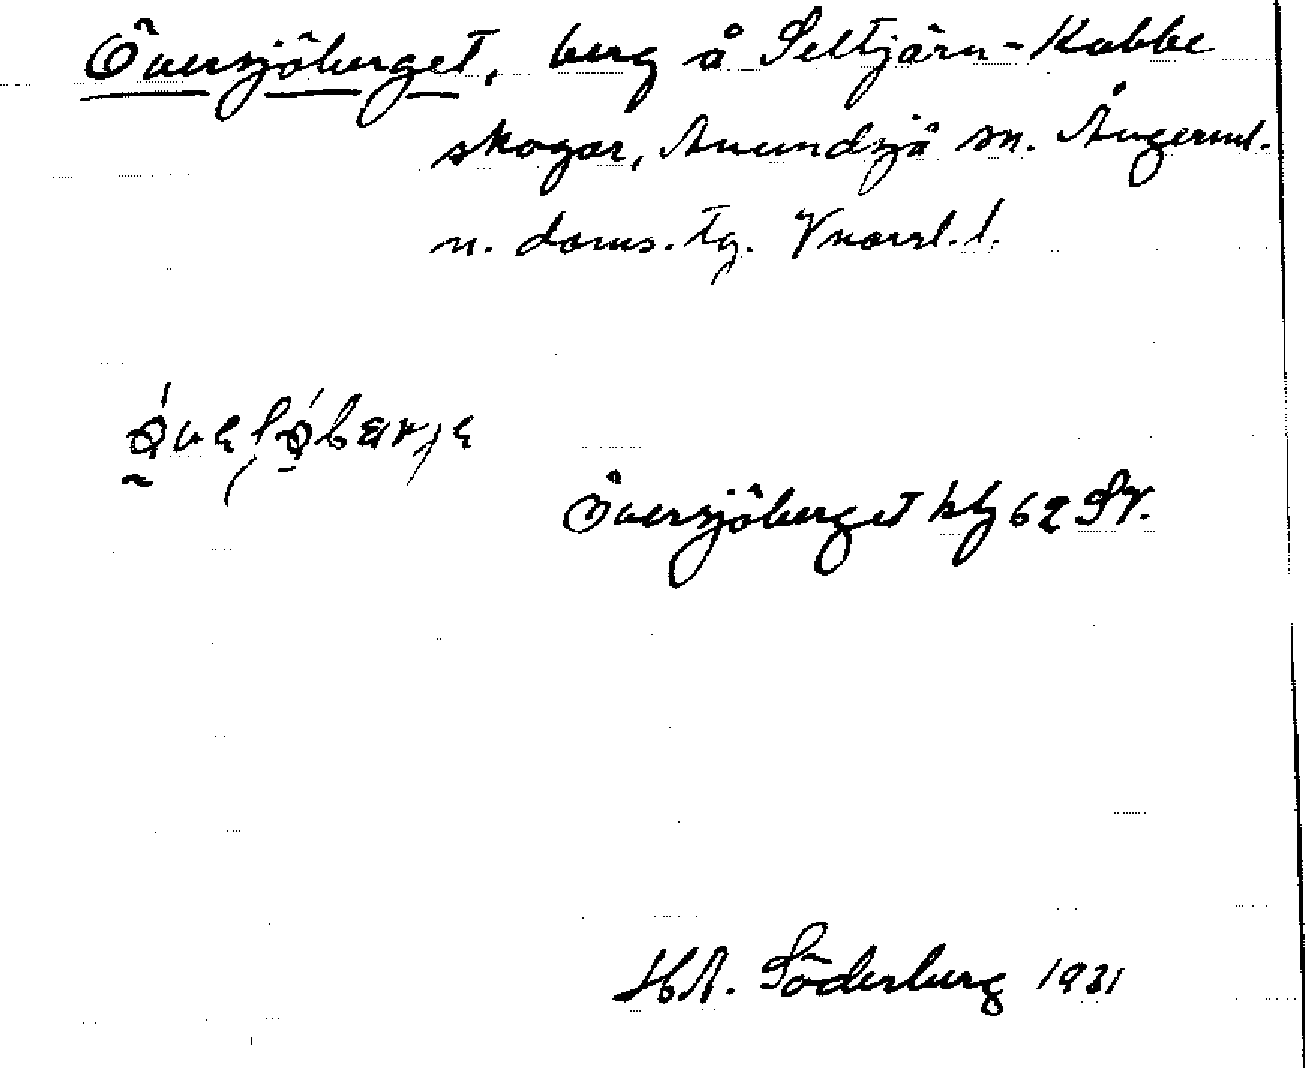 Översjöberget, berg å Seltjärn-Kubbe
skogar, Anundsjö sn. Ångerml.
n. doms. tg. Vnorrl. l.
Översjöberget kbl 62 SV.
H.A. Söderberg 1931